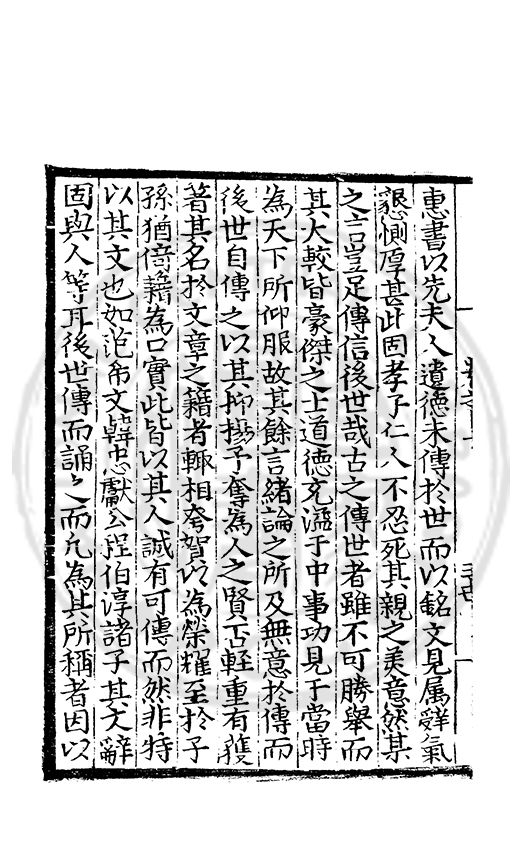 惠書以先夫人遺德未傳於世而以銘文見属辭氣
懇惻厚甚此固孝子仁人不忍死其親之美意然某
之言豈足傳信後世哉古之傳世者雖不可勝舉而
其大較皆豪傑之士道德充溢于中事功見于當時
為天下所仰服故其餘言緒論之所及無意於傳而
後世自傳之以其抑揚予奪為人之賢否軽重有獲
著其名於文章之籍者輙相夸賀以為榮耀至於子
孫猶偣籍為口實此皆以其人誠有可傳而然非特
以其文也如范希文韓忠獻公程伯淳諸子其文辭
固與人等耳後世傳而誦之而凢為其所稱者因以